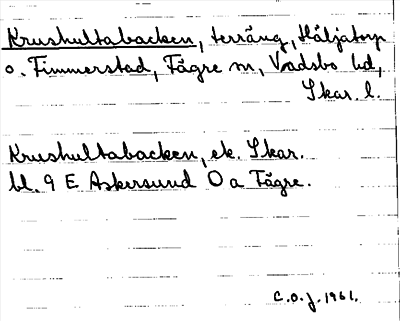 Krushultabacken, terräng, Häljatorp
o. Fimmerstad, Fägre sn, Vadsbo hd,
Skar. l.
Krushultabacken, ek. Skar.
bl. 9 E Askersund O a Fägre.
C.O.J. 1961.